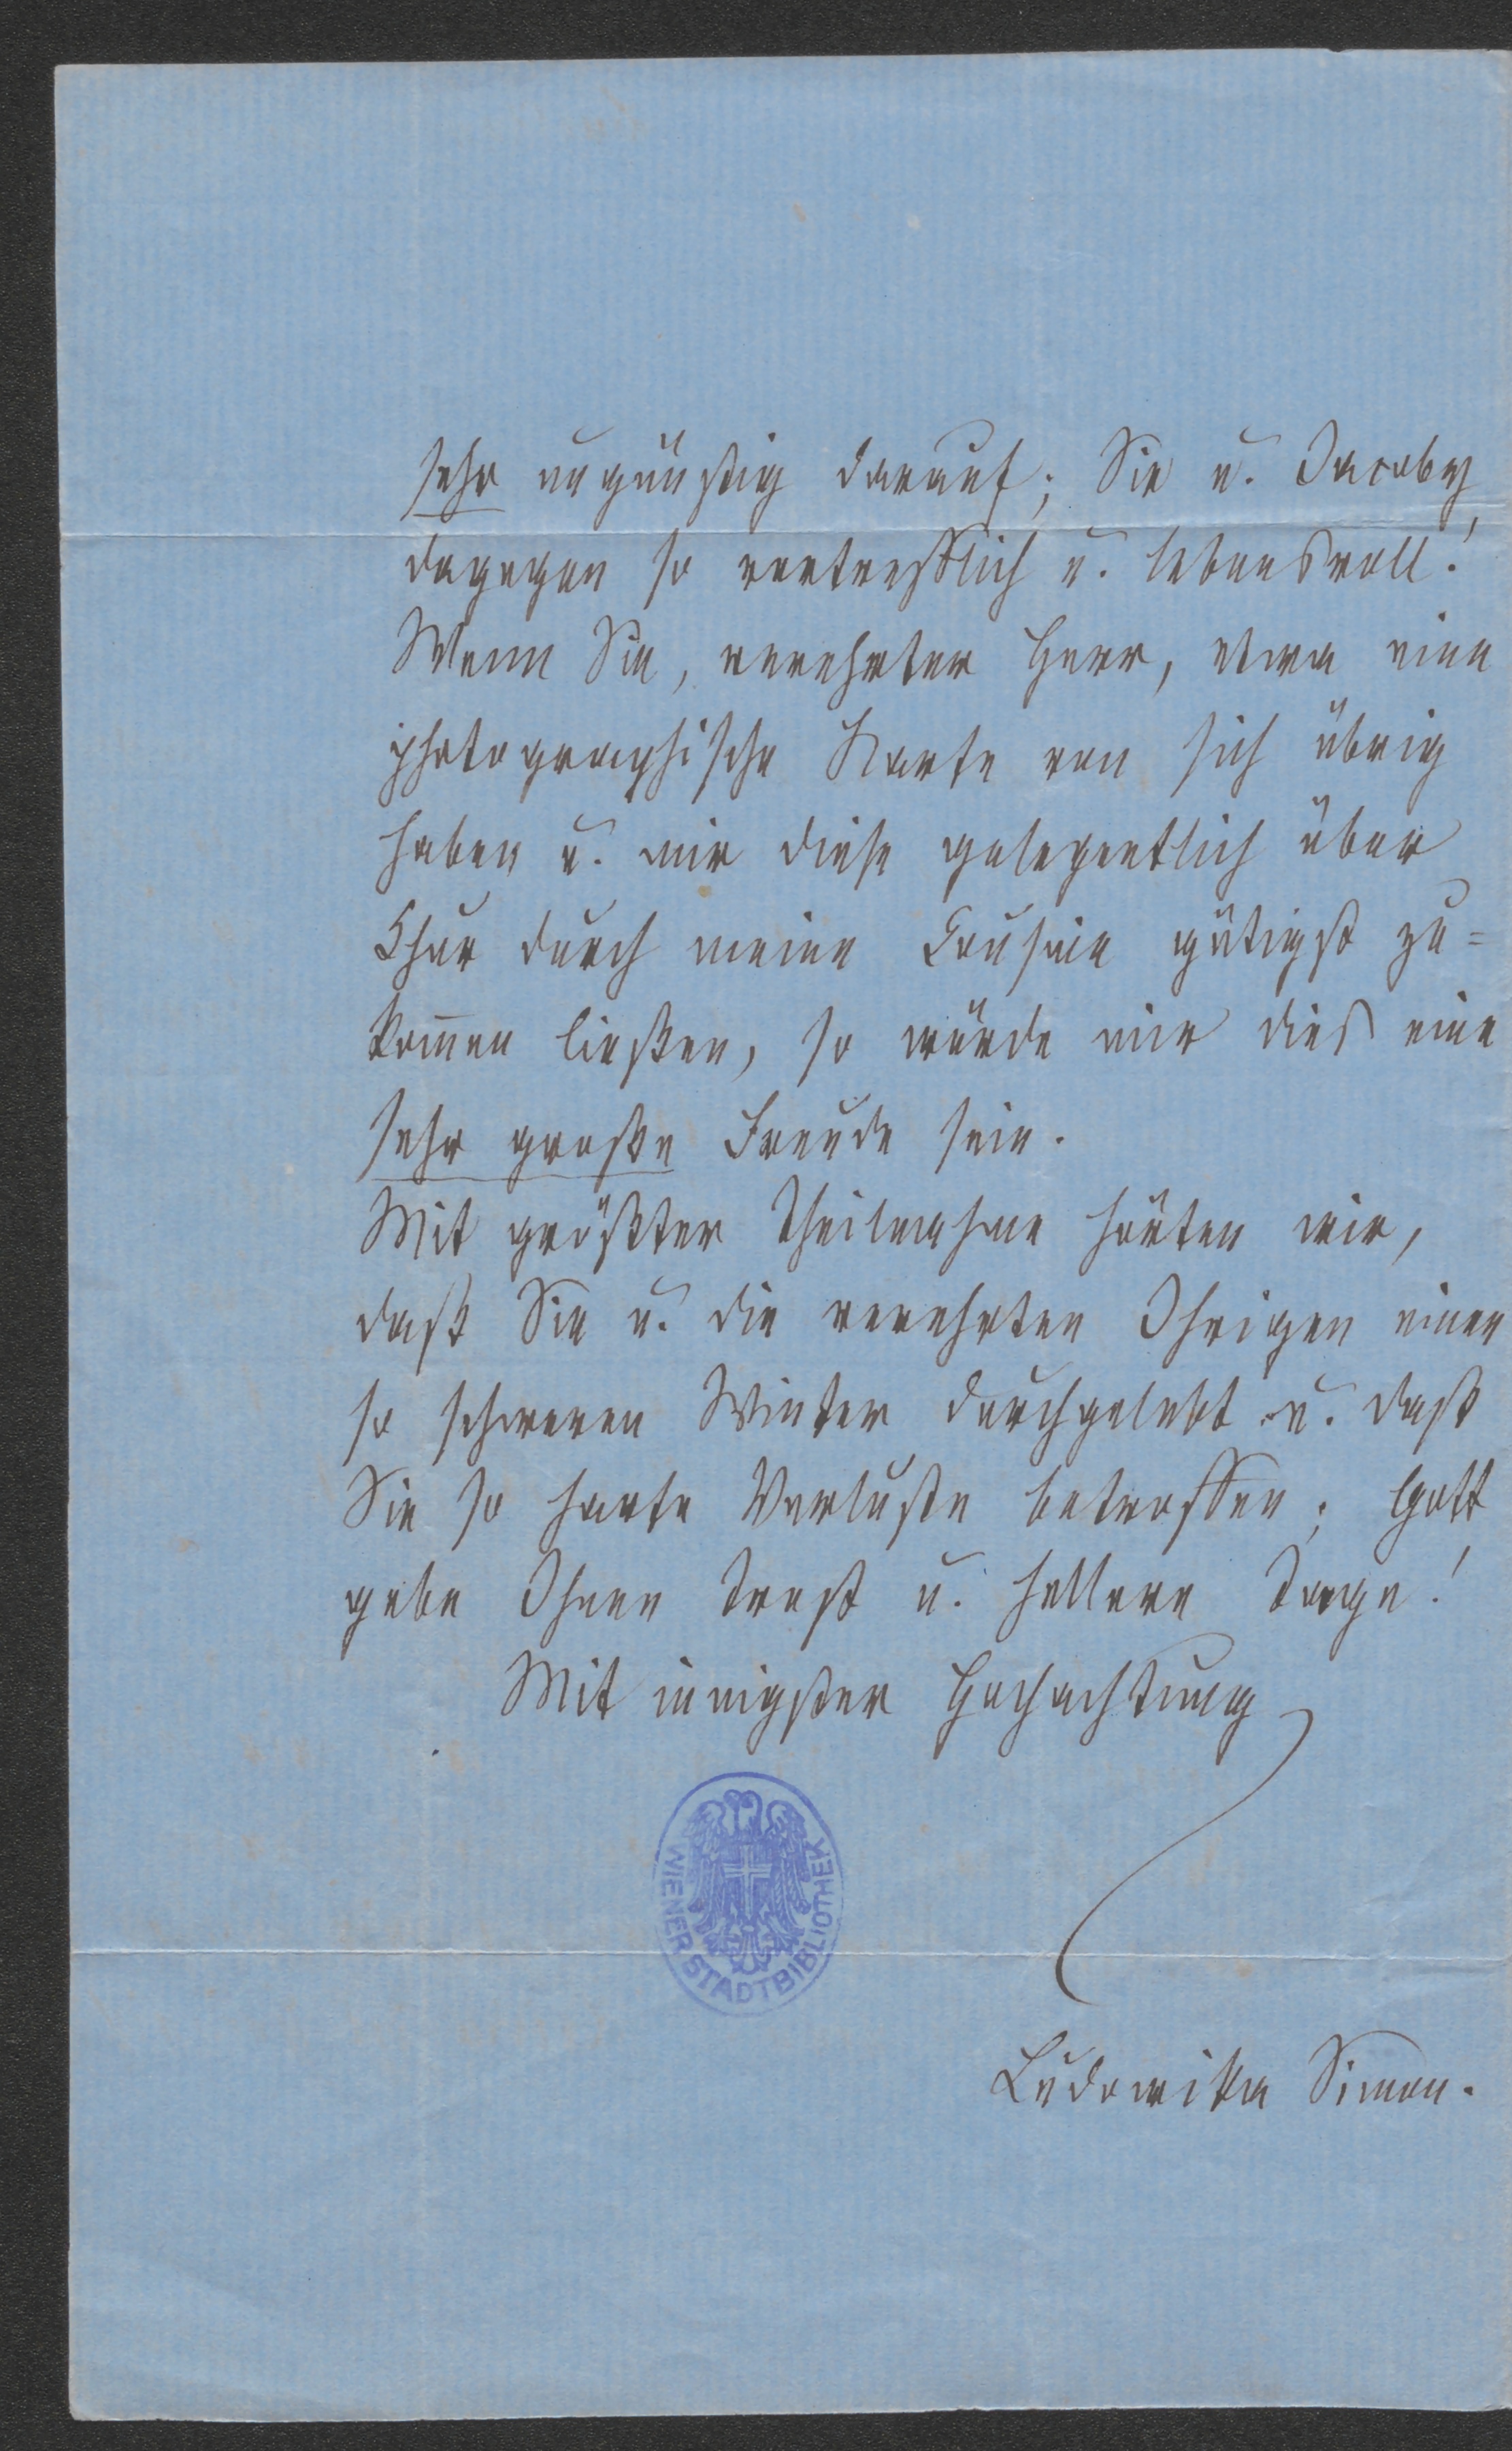 sehr ungünstig darauf; Sie u. Jacoby
dagegen so vortrefflich u. lebensvoll!
Wenn Sie, verehrter Herr, etwa eine
photographische Karte von sich übrig
haben u. mir diese gelegentlich über
Chur durch meine Cousine gütigst zu=
kom̅en ließen, so würde mir dies eine
sehr große Freude sein.
Mit größter Theilnahme hörten wir,
daß Sie u. die verehrten Ihrigen einen
so schweren Winter durchgelebt u. daß
Sie so harte Verluste betroffen; Gott
gebe Ihnen Trost u. hellere Tage!
Mit innigster Hochachtung
WIENER STADTBIBLIOTHEK
Ludowika Simon.